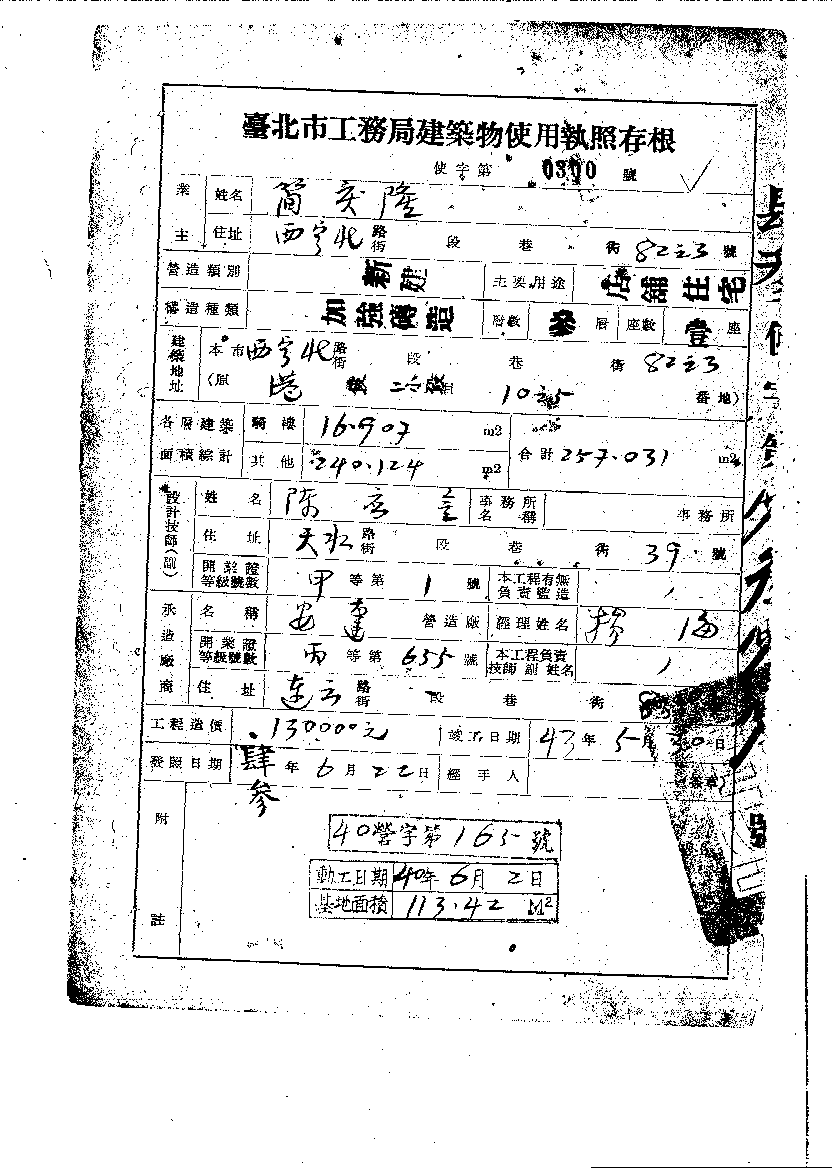 臺北市工務局建築物使用執照存根
使字第 0300 號
業主 姓名 簡 隆
住址 西寧北 路街 段 巷 衖 82之3 號
營造類別 新建 主要用途 店舖住宅
構造種類 加強磚造 層數 參 層 座數 壹 座
建築地址 本市 西寧北 路街 段 巷 衖 82之3
(原 港 10之5 番地)
各層建築面積綜計 騎樓 16.907 m2 合計 257.031 m2
其他 240.124 m2
設計技師(副) 姓名 陳 事務所名稱 事務所
住址 天水 路街 段 巷 衖 39 號
開業證等級號數 甲 等第 1 號 本工程有無負責監造
承造廠商 名稱 安 營造廠 經理姓名 楊
開業證等級號數 丙 等第 655 號 本工程負責技師副姓名
住址 路街 段 巷 衖
工程造價 130000元 竣工日期 43年 5月 30日
發照日期 肆參 年 6月 22日 經手人
附註
40營字第165號
動工日期 40年 6月 2日
基地面積 113.42 M²